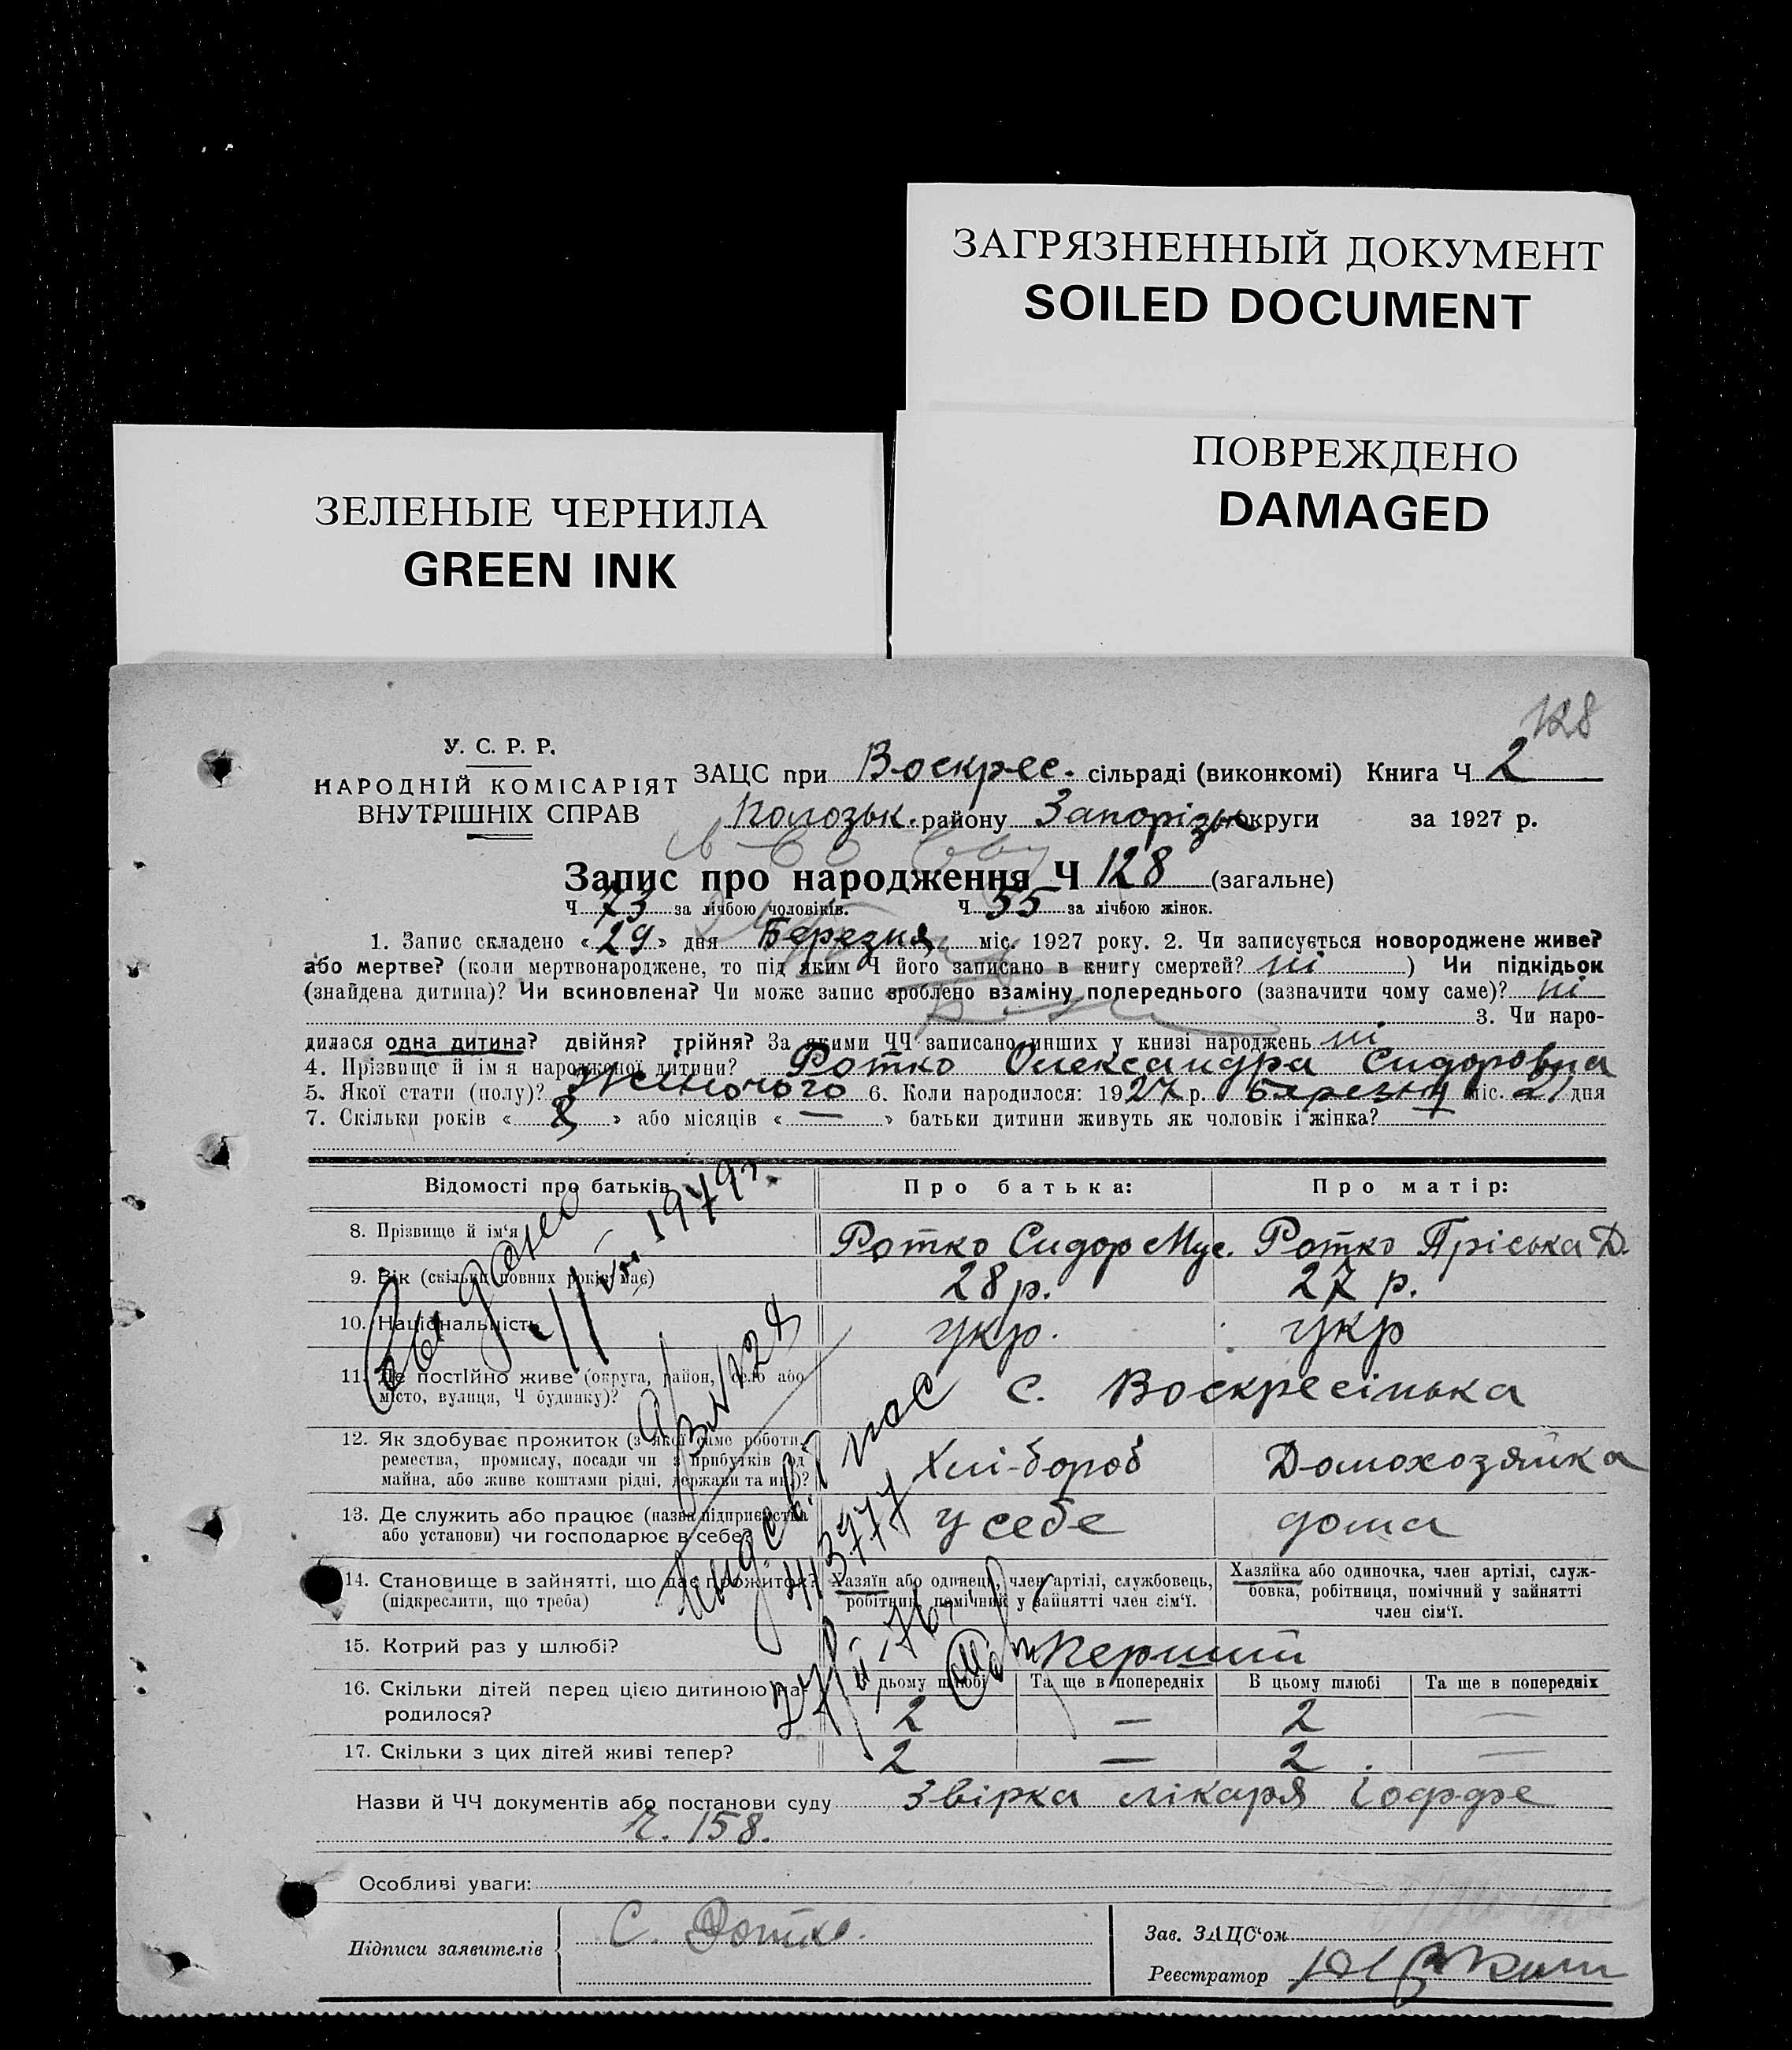 ЗАГРЯЗНЕННЫЙ ДОКУМЕНТ
SOILED DOCUMENT
ПОВРЕЖДЕНО
DAMAGED
ЗЕЛЕНЫЕ ЧЕРНИЛА
GREEN INK
128
У. С. Р. Р.
НАРОДНІЙ КОМІСАРІЯТ
ВНУТРІШНІХ СПРАВ
ЗАЦС при Воскрес. сільраді (виконкомі) Книга Ч 2
району Запорізьк округи за 1927 р.
Запис про народження Ч 128 (загальне)
Ч 73 за лічбою чоловіків. Ч 55 за лічбою жінок.
1. Запис складено «29» дня Березня міс. 1927 року. 2. Чи записується новороджене живе?
або мертве? (коли мертвонароджене, то під яким Ч його записано в книгу смертей? ні ) Чи підкідьок
(знайдена дитина)? Чи всиновлена? Чи може запис зроблено взаміну попереднього (зазначити чому саме)? ні
3. Чи наро-
дилася одна дитина? двійня? трійня? За якими ЧЧ записано инших у книзі народжень ні
4. Прізвище й ім'я народженої дитини? Ротко Олександра Сидоровна
5. Якої стати (полу)? Жіночого 6. Коли народилося: 1927 р. Березня міс. 21 дня
7. Скільки років « 8 » або місяців « — » батьки дитини живуть як чоловік і жінка?
Відомості про батьків Про батька: Про матір:
8. Прізвище й ім'я Ротко Сидор Мус. Ротко Пріська Д.
9. Вік (скільки повних років має) 28 р. 27 р.
10. Національність укр. укр
11. Де постійно живе (округа, район, село або
місто, вулиця, Ч будинку)? с. Воскресінька
12. Як здобуває прожиток (з якої саме роботи,
ремества, промислу, посади чи з прибутків од
майна, або живе коштами рідні, держави та ин.)? Хлі-бороб Домохозяйка
13. Де служить або працює (назва підприємства
або установи) чи господарює в себе? у себе дома
14. Становище в зайнятті, що дає прожиток?
(підкреслити, що треба)
Хазяїн або одинець, член артілі, службовець,
робітник, помічний у зайнятті член сім'ї.
Хазяйка або одиночка, член артілі, служ-
бовка, робітниця, помічний у зайнятті
член сім'ї.
15. Котрий раз у шлюбі? Перший
16. Скільки дітей перед цією дитиною на-
родилося?
В цьому шлюбі Та ще в попередніх В цьому шлюбі Та ще в попередніх
2 — 2 —
17. Скільки з цих дітей живі тепер? 2 — 2 —
Назви й ЧЧ документів або постанови суду Звірка лікаря Гоффе
Ч. 158.
Особливі уваги:
Підписи заявителів С. Ротко.
Зав. ЗАЦС'ом
Реєстратор
Выдано
1979 г.